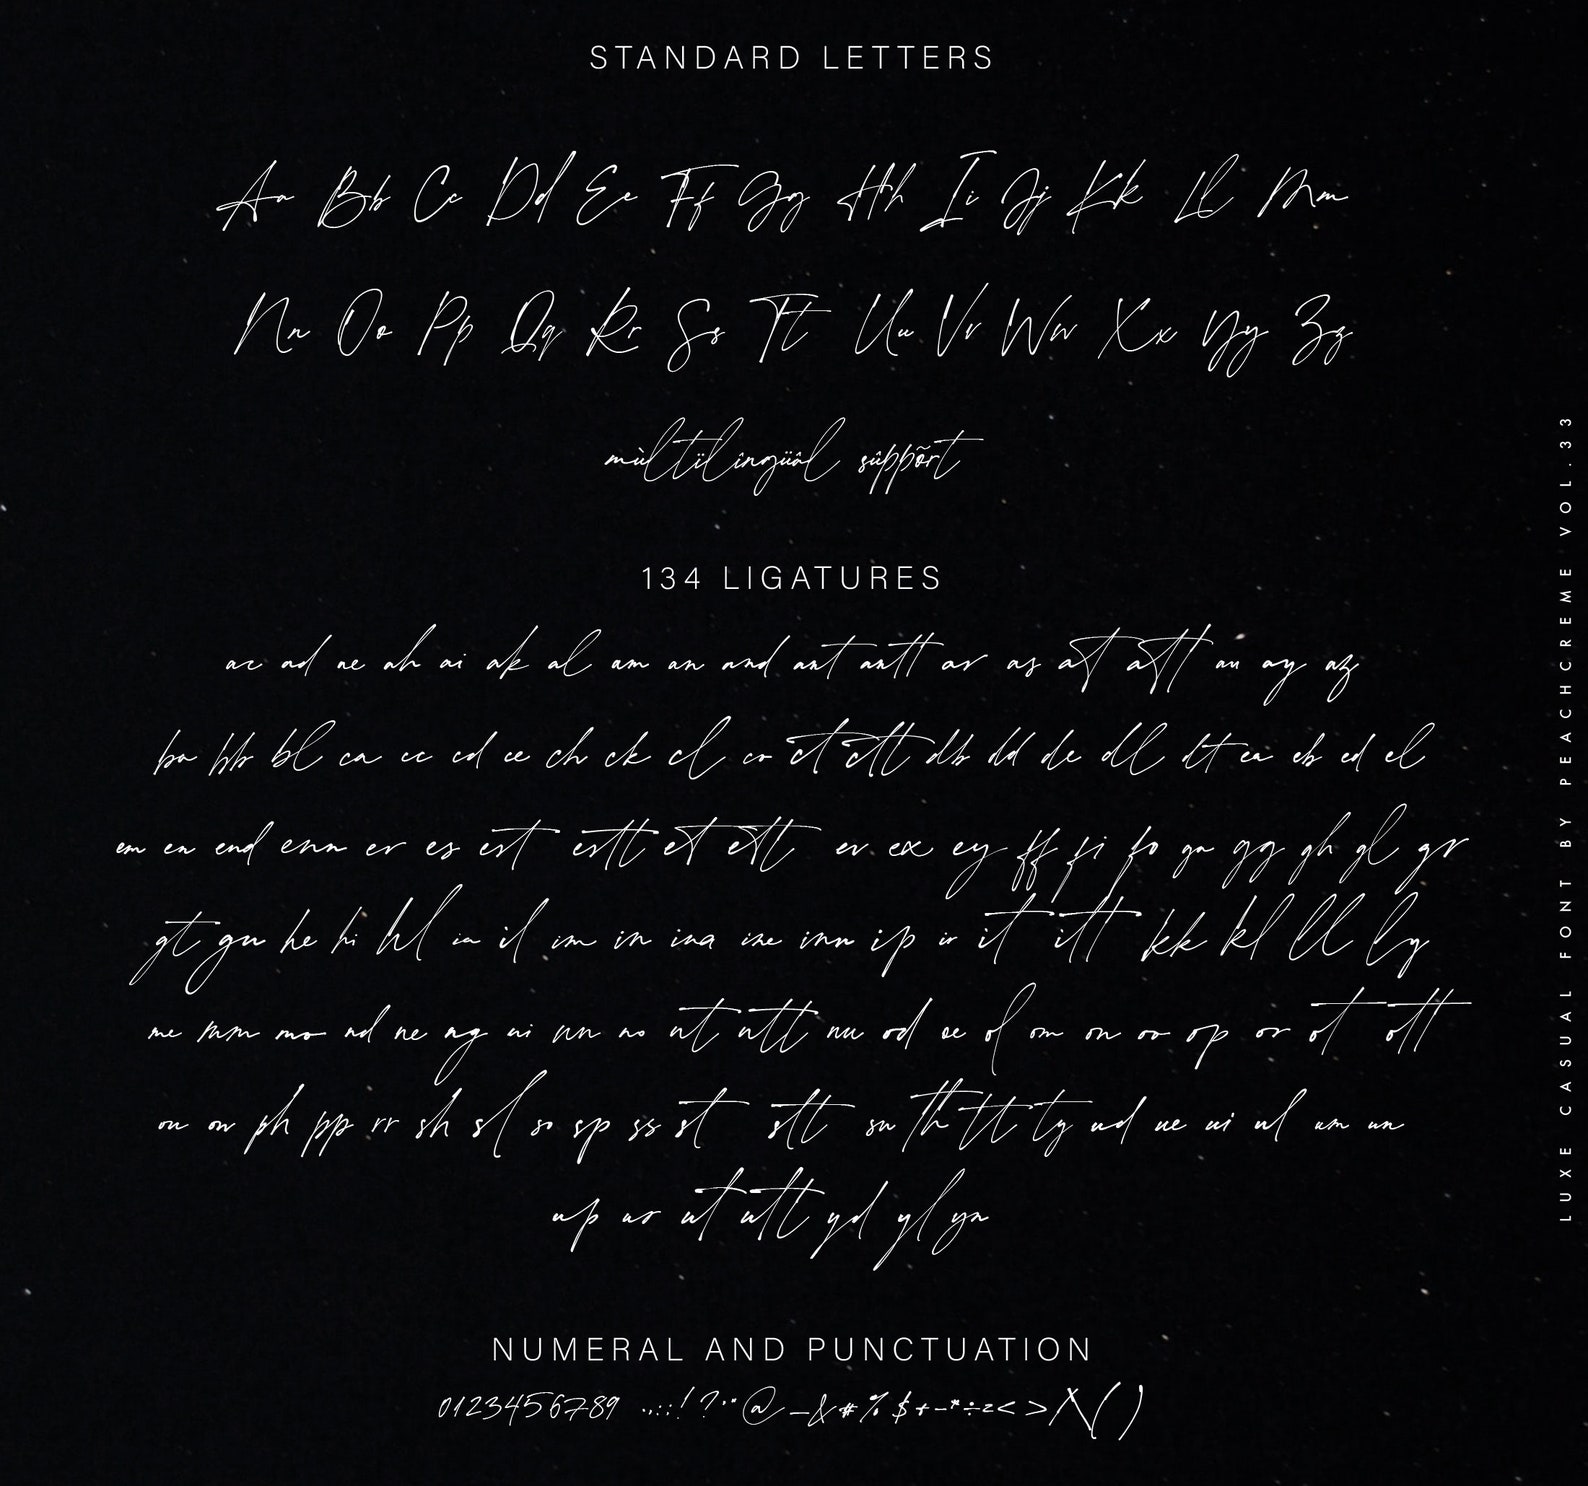 STANDARD LETTERS
Aa Bb Cc Dd Ee Ff Gg Hh Ii Jj Kk Ll Mm
Nn Oo Pp Qq Rr Ss Tt Uu Vv Ww Xx Yy Zz
mùltïlîngüâl sûppõrt
134 LIGATURES
ac ad ae ah ai ak al am an and ant antt ar as at att au ay az
ba bb bl ca cc cd ce ch ck cl co ct ctt db dd de dl dt ea eb ed el
em en end enn er es est estt et ett ev ex ey ff fi fo ga gg gh gl gr
gt gu he hi hl ia il im in ina ine inn ip ir it itt kk kl ll ly
me mm mo nd ne ng ni nn no nt ntt nu od oe of om on oo op or ot ott
ou ow ph pp rr sh sl so sp ss st stt su th tt ty ud ue ui ul um un
up us ut utt yd yl yn
NUMERAL AND PUNCTUATION
0123456789 .,:;! ? '" @ _ & # % $ + - * ÷ = < > / \ ( )
LUXE CASUAL FONT BY PEACHCREME VOL.33